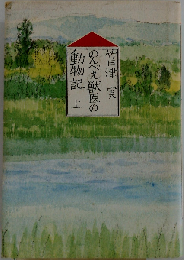 竹田津 実
のんべえ獣医の
動物記 上